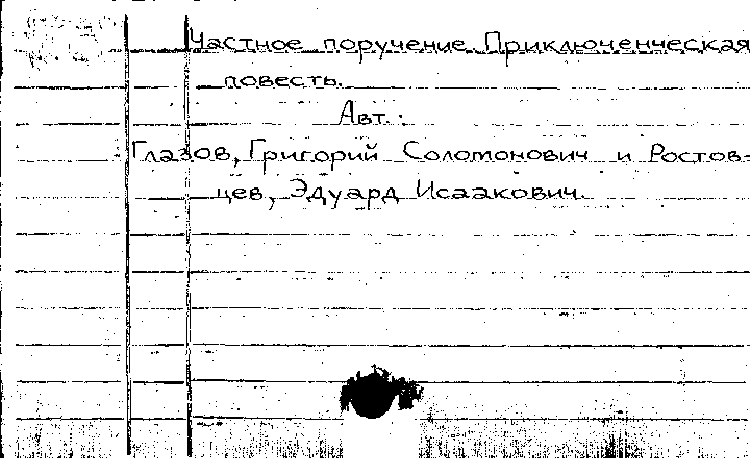 Частное поручение. Приключенческая
повесть.
Авт.:
Глазов, Григорий Соломонович и Ростов-
цев, Эдуард Исаакович.